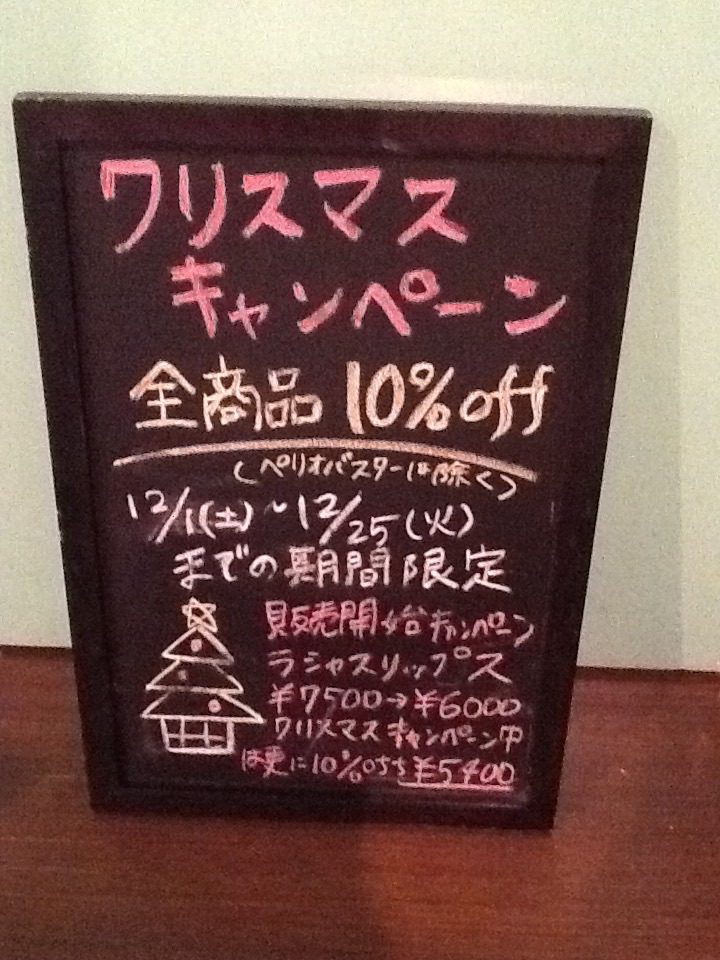 クリスマス
キャンペーン
全商品 10%off
(ペリオバスターは除く)
12/1(土)~12/25(火)
までの期間限定
販売開始キャンペーン
ラシャスリップス
¥7500→¥6000
クリスマスキャンペーン中
は更に10%offで¥5400